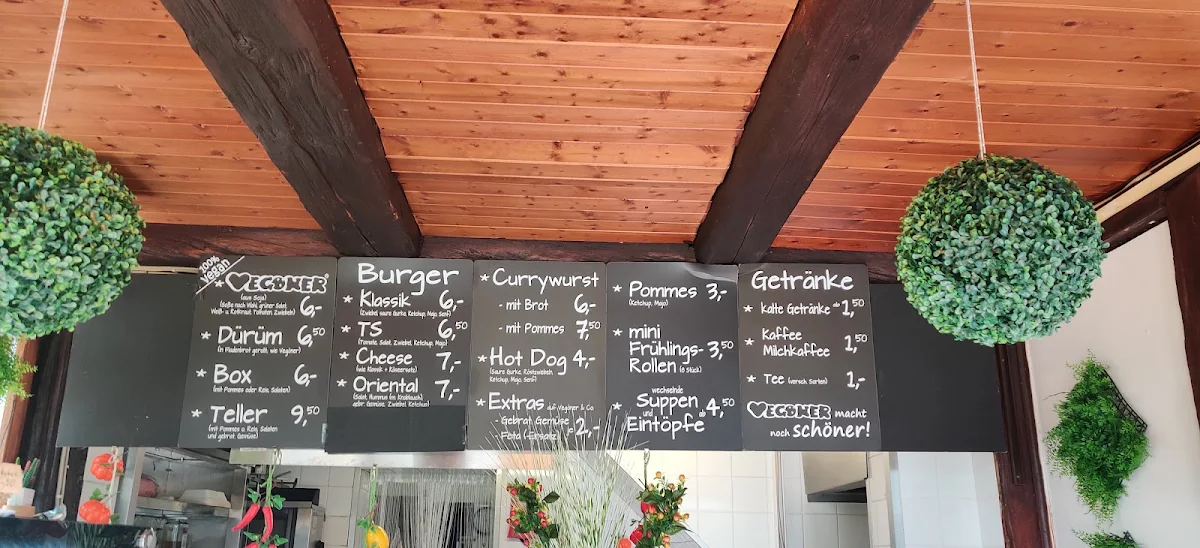 100%
vegan
* VEGÖNER®
(aus Soja)
(Soße nach Wahl, grüner Salat,
Weiß- u. Rotkraut, Tomaten, Zwiebeln) 6,-
* Dürüm 6,50
(in Fladenbrot gerollt, wie Vegöner)
* Box 6,-
(mit Pommes oder Reis, Salaten)
* Teller 9,50
(mit Pommes u. Reis, Salaten
und gebrat. Gemüse)
Burger
* Klassik 6,-
(Zwiebel, saure Gurke, Ketchup, Majo, Senf)
* TS 6,50
(Tomate, Salat, Zwiebel, Ketchup, Majo)
* Cheese 7,-
(wie Klassik + Käseersatz)
* Oriental 7,-
(Salat, Hummus (m. Knoblauch)
gebr. Gemüse, Zwiebel, Ketchup)
* Currywurst
- mit Brot 6,-
- mit Pommes 7,50
* Hot Dog 4,-
(saure Gurke, Röstzwiebeln,
Ketchup, Majo, Senf)
* Extras auf Vegöner & Co
- Gebrat. Gemüse
- Feta (-Ersatz) je 2,-
* Pommes 3,-
(Ketchup, Majo)
* mini
Frühlings-
Rollen (6 Stück) 3,50
wechselnde
* Suppen
und ab 4,50
Eintöpfe
Getränke
* kalte Getränke ab 1,50
* Kaffee
Milchkaffee 1,50
* Tee (versch. Sorten) 1,-
VEGÖNER macht
noch schöner!